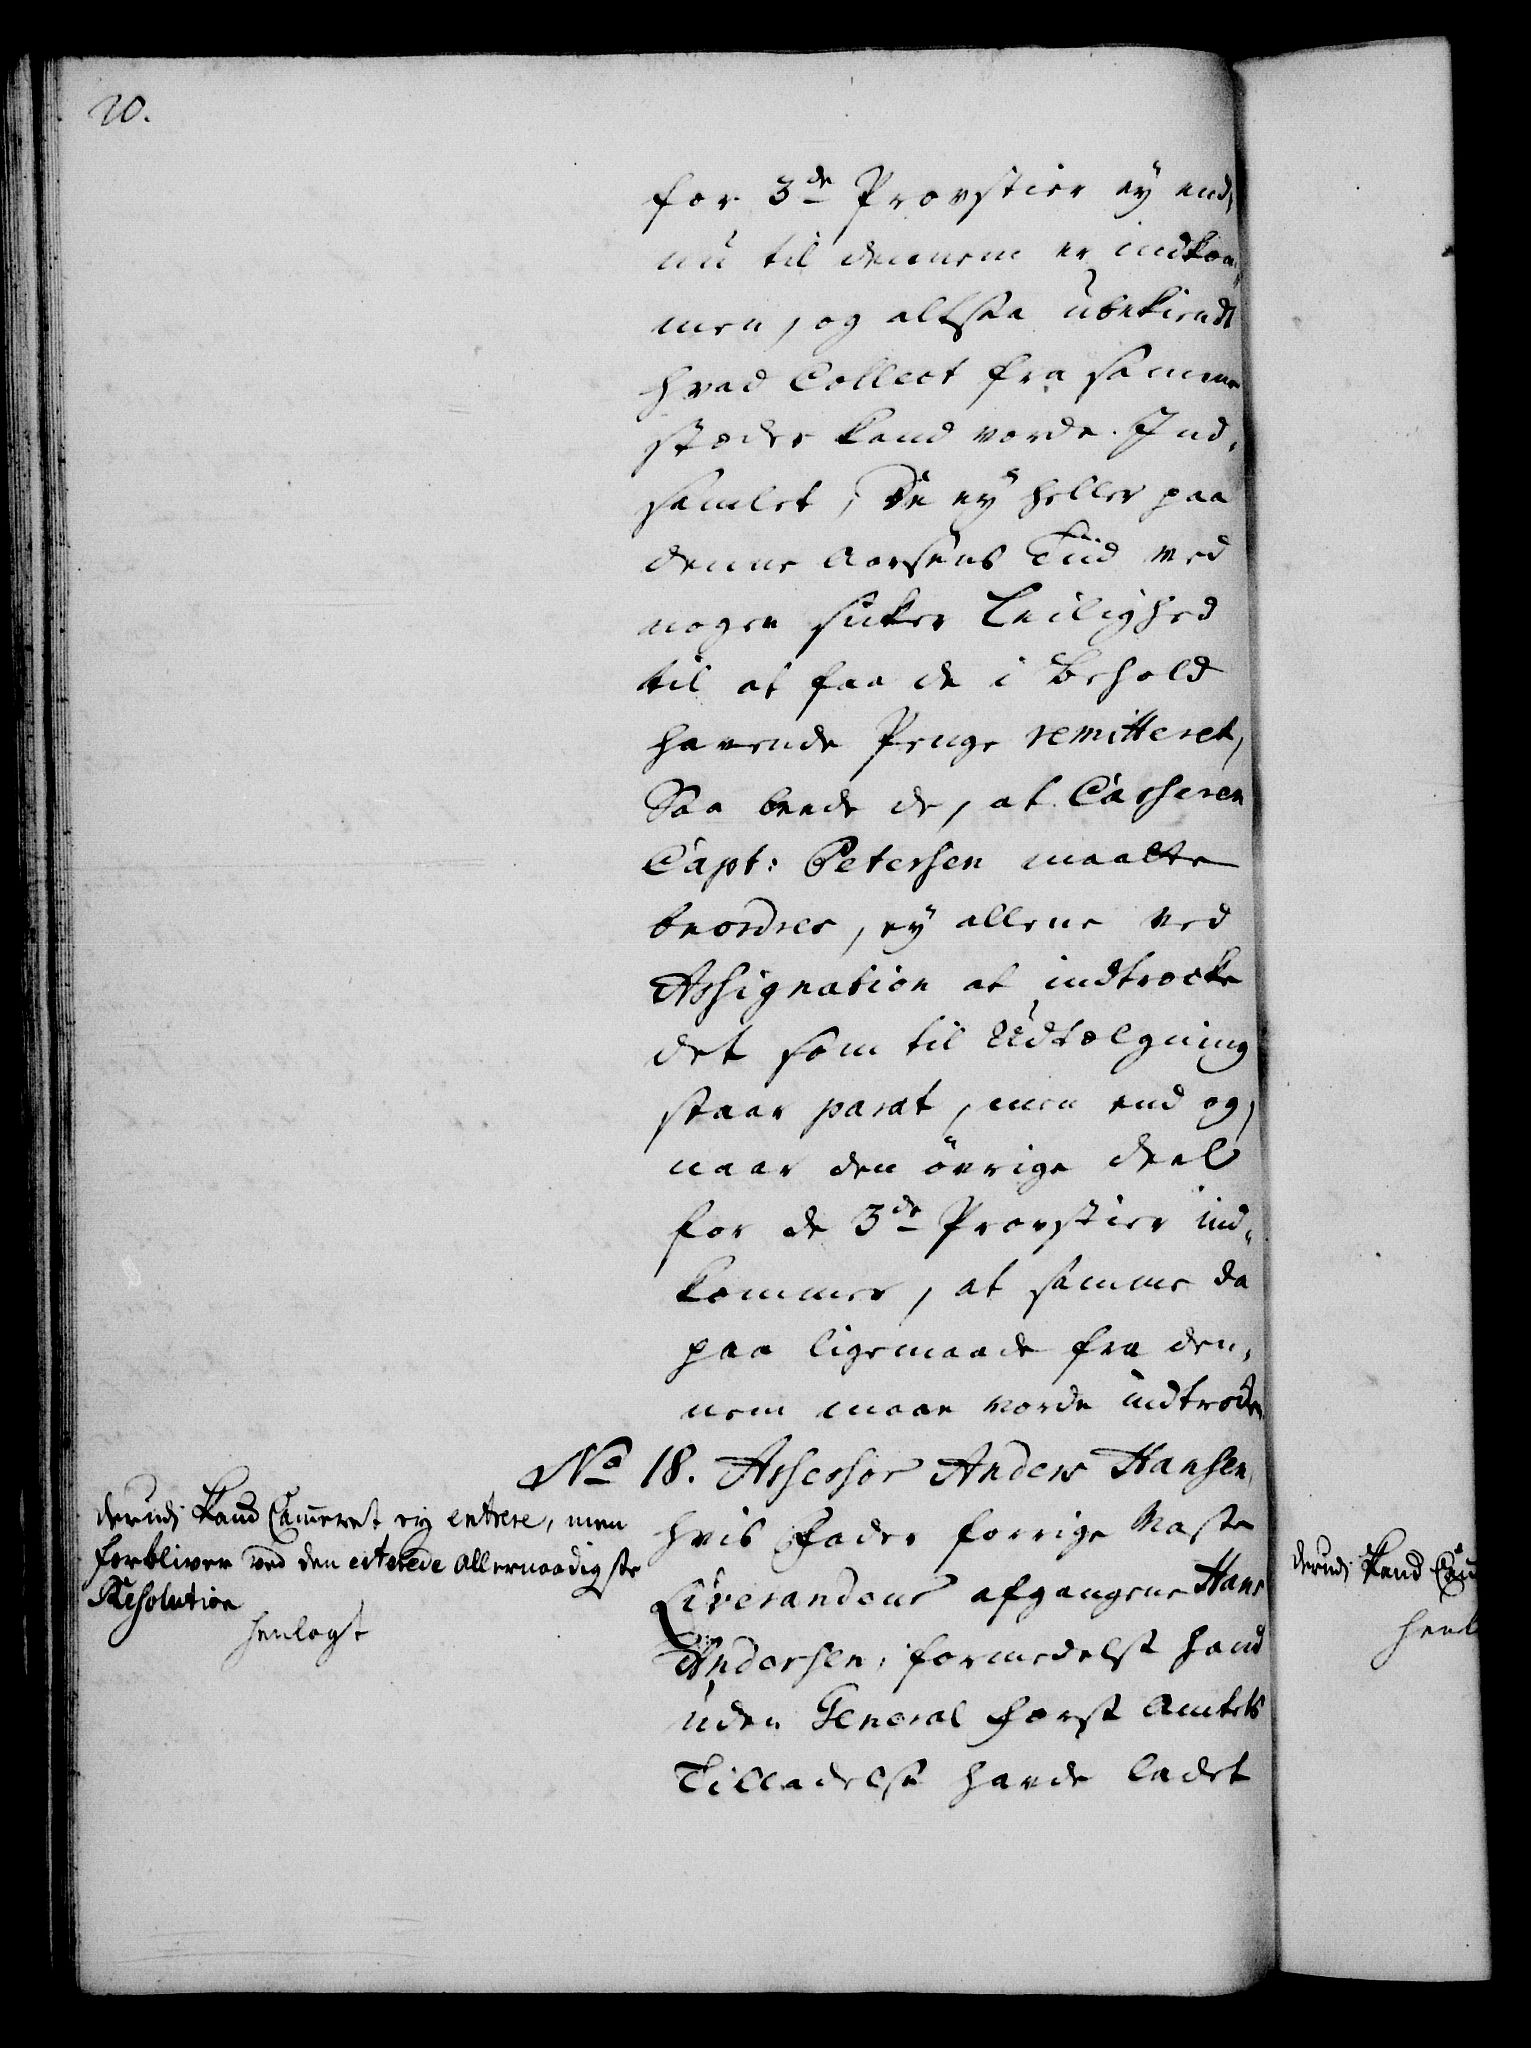 20.
for 3de Provstier ey end,
nu til dennem er indkom,
men, og altsaa ubekiendt
hvad Collect fra samme
stæder kand vorde Ind,
samlet, De ey heller paa
denne Aarsens Tiid ved
nogen sicker Leilighed
til at faa de i Behold
havende Penge remitteret,
Saa beede de, at Casseren
Capt: Petersen maatte
beordres, ey allene ved
Assignation at indtrecke
det som til Udtælgning
staar parat, men end og,
naar den övrige deel
for de 3de Provstier ind,
kommer, at samme da
paa ligemaade fra den,
nem maae vorde indtrecke
No 18. Assessor Anders Hansen,
hvis Fader forrige Maste
Liverandeur afgangene Hans
Andersen, formedelst hand
uden General Forst Amtets
Tilladelse havde ladet
derudj Kand Cammeret ey entrere, men
forbliver ved den erterede allernaadigste
Resolution
henlagt
derudj Kand Cam
henl